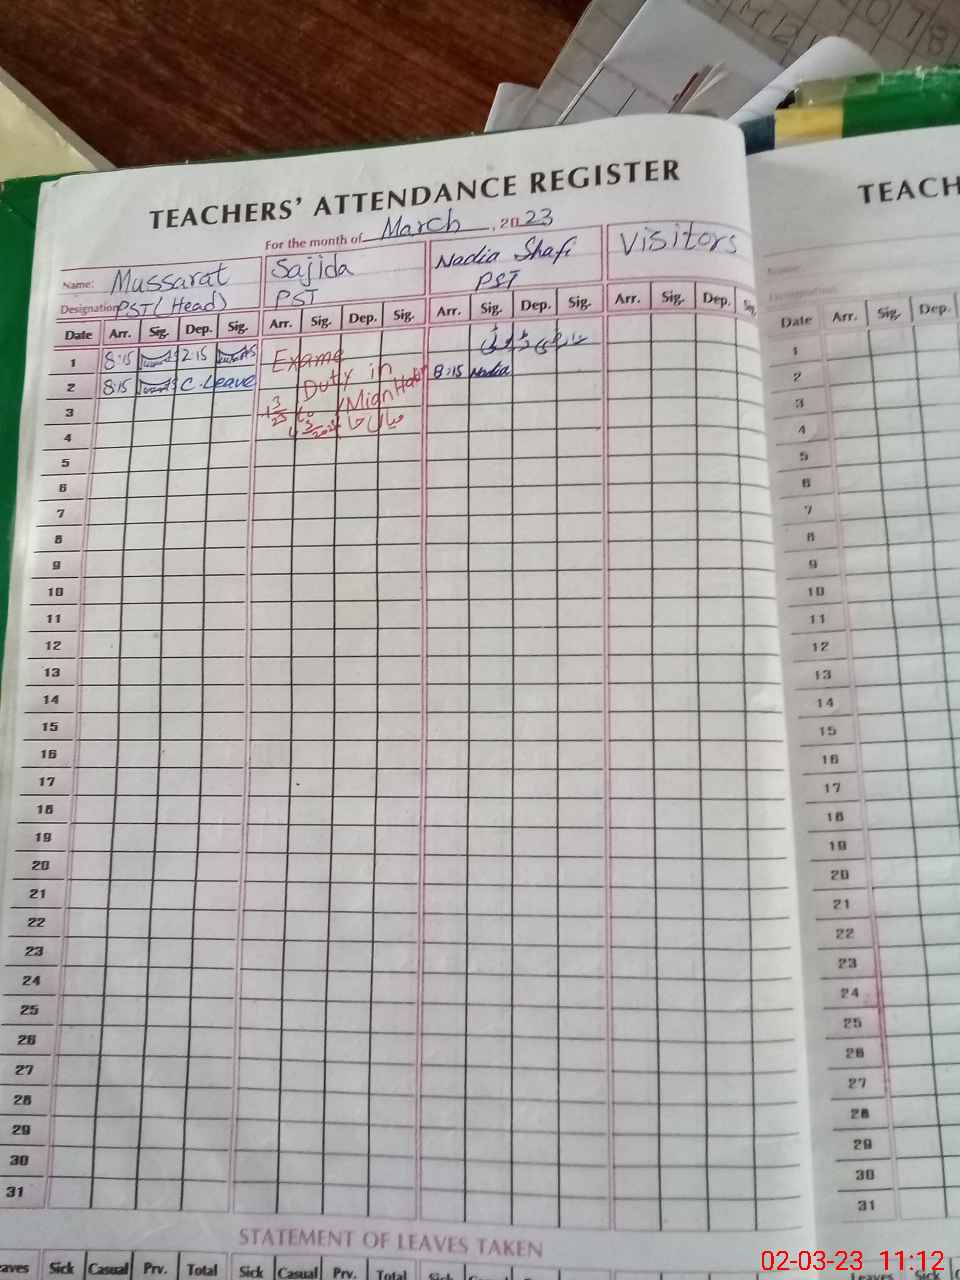 TEACHERS' ATTENDANCE REGISTER
For the month of March, 2023
Name: Mussarat Sajida Nadia Shafi Visitors
Designation PST (Head) PST PST
Date Arr. Sig. Dep. Sig. Arr. Sig. Dep. Sig. Arr. Sig. Dep. Sig. Arr. Sig. Dep. Sig.
1 8:15 2:15 Exame
2 8:15 C. Leave Duty in 8:15 Nadia
3 to Mian
4
5
6
7
8
9
10
11
12
13
14
15
16
17
18
19
20
21
22
23
24
25
26
27
28
29
30
31
STATEMENT OF LEAVES TAKEN
eaves Sick Casual Prv. Total Sick Casual Prv. Total Sick Casual Prv. Total
TEACH
Name:
Designation:
Date Arr. Sig. Dep.
1
2
3
4
5
6
7
8
9
10
11
12
13
14
15
16
17
18
19
20
21
22
23
24
25
26
27
28
29
30
31
Leaves Sick
02-03-23 11:12